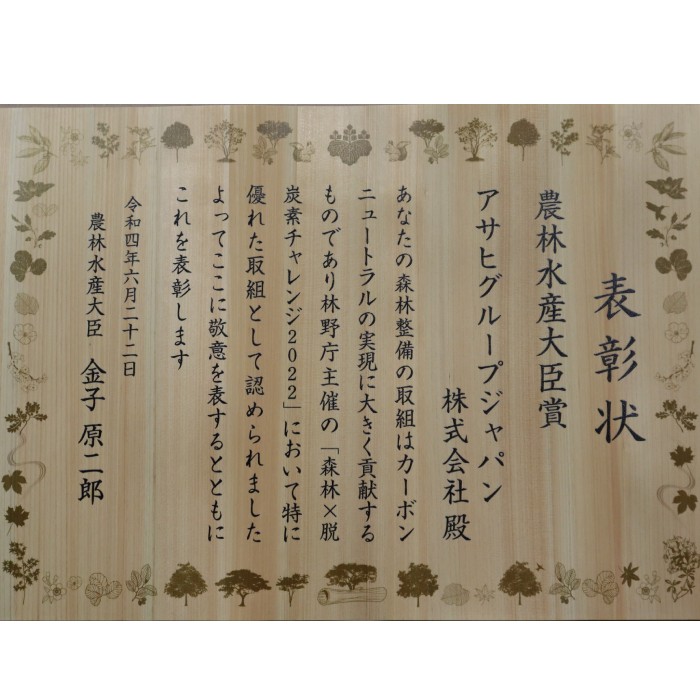 表彰状
農林水産大臣賞
アサヒグループジャパン
株式会社 殿
あなたの森林整備の取組はカーボン
ニュートラルの実現に大きく貢献する
ものであり林野庁主催の「森林×脱
炭素チャレンジ2022」において特に
優れた取組として認められました
よってここに敬意を表するとともに
これを表彰します
令和四年六月二十二日
農林水産大臣 金子 原二郎